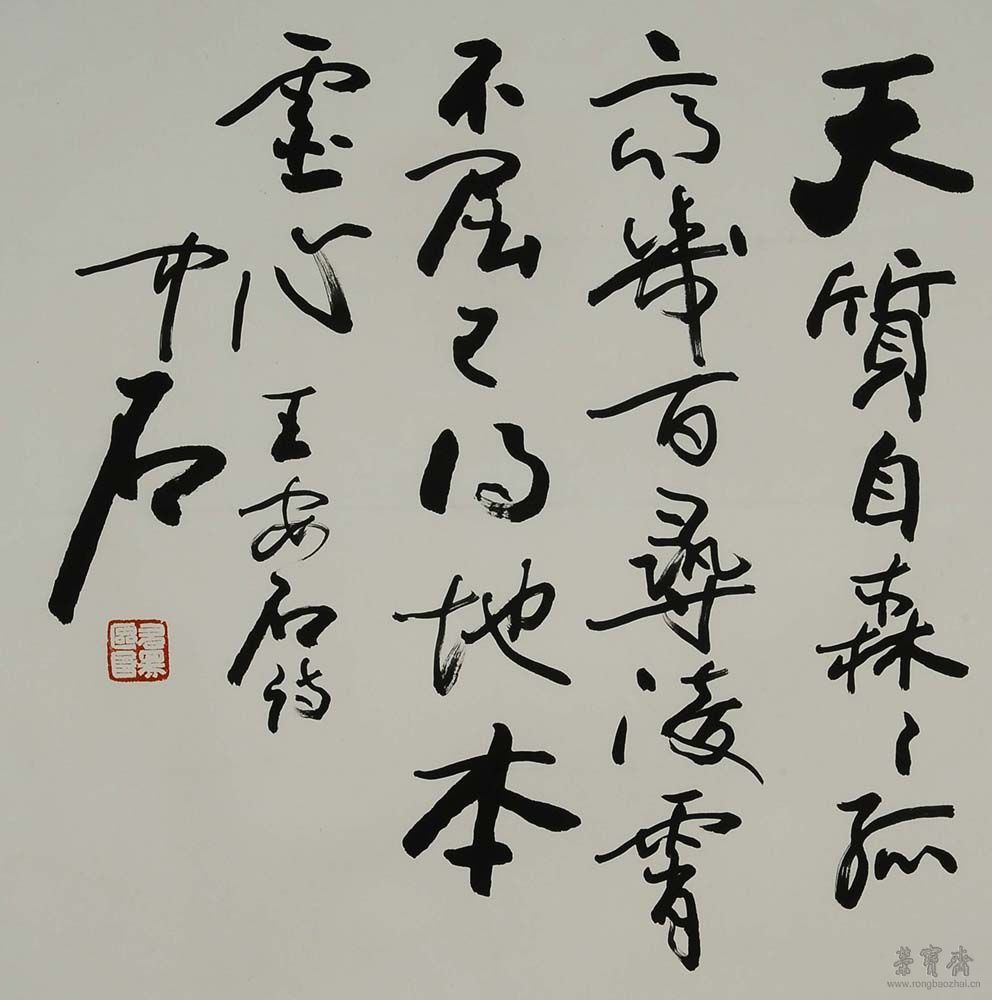 天質自森々孤
高幾百尋凌霄
不屈己得地本
虛心
王安石詩
中石
榮寶齋
www.rongbaozhai.cn